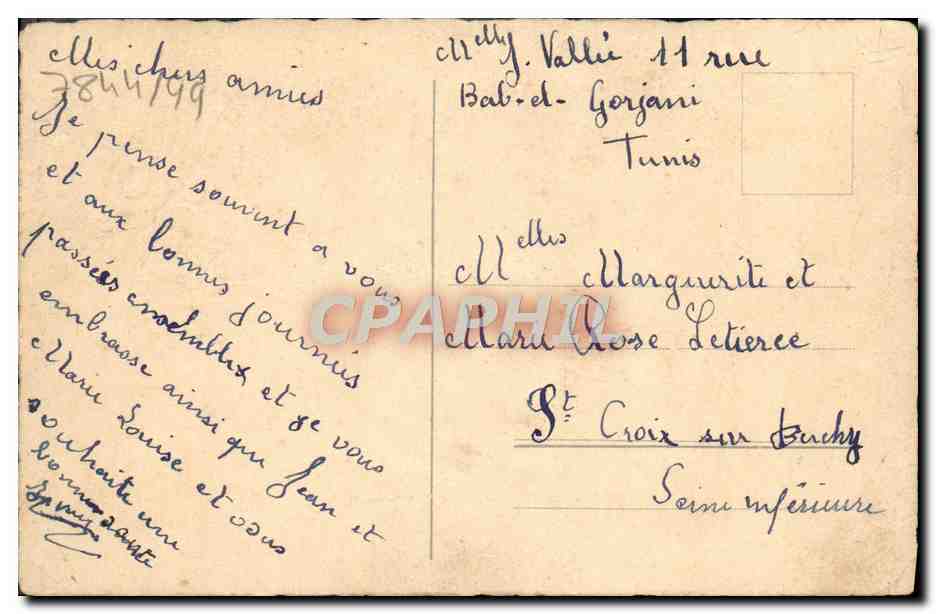 Mes chers amies
7844/49
Je pense souvent a vous
et aux bonnes journées
passées ensembles et je vous
embrasse ainsi que Jean et
Marie Louise et vous
souhaite une
bonne sante
Melle J. Vallée 11 rue
Bab-el-Gorjani
Tunis
Melles Marguerite et
Marie Rose Letierce
St Croix sur Buchy
Seine inférieure
CPAPHIL